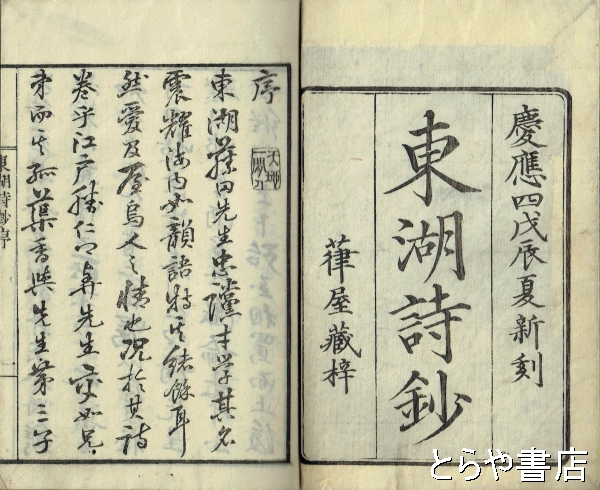 慶應四戊辰夏新刻
東湖詩鈔
葎屋藏梓
序
東湖藤田先生忠讜才学其名
震耀海内如韻語特其緒餘耳
然愛及屋烏人之情也況於其詩
巻乎江戸 仁 弃先生交如兄
弟而 孤葉香與先生第三子
東湖詩鈔序
とらや書店